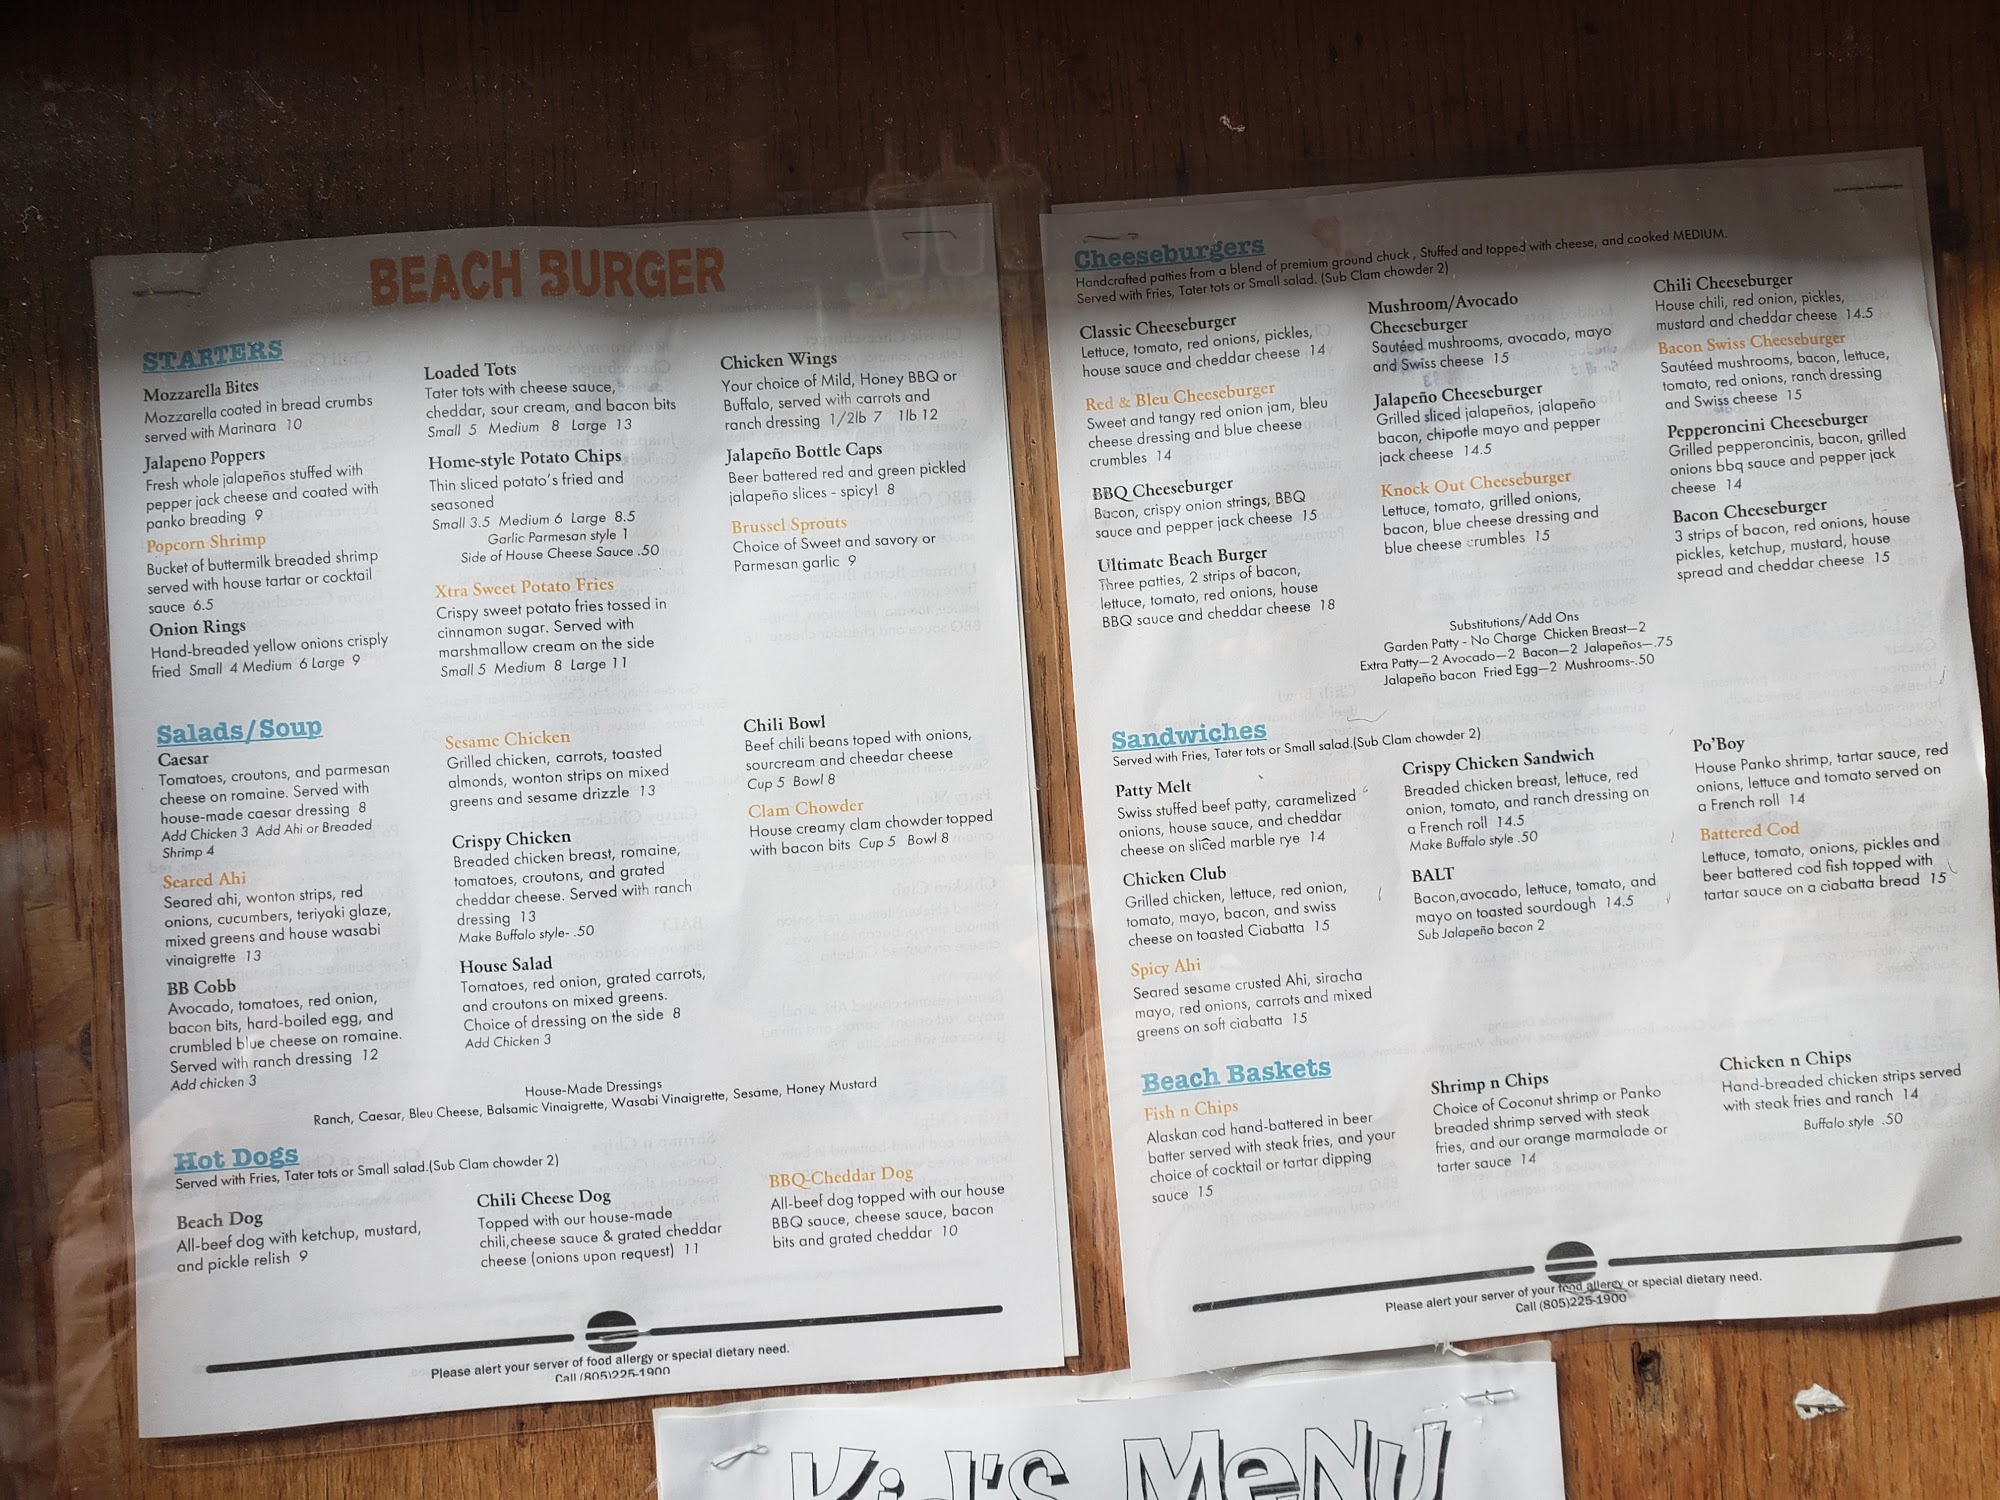 BEACH BURGER
STARTERS
Mozzarella Bites
Mozzarella coated in bread crumbs
served with Marinara 10
Jalapeno Poppers
Fresh whole jalapeños stuffed with
pepper jack cheese and coated with
panko breading 9
Popcorn Shrimp
Bucket of buttermilk breaded shrimp
served with house tartar or cocktail
sauce 6.5
Onion Rings
Hand-breaded yellow onions crisply
fried Small 4 Medium 6 Large 9
Loaded Tots
Tater tots with cheese sauce,
cheddar, sour cream, and bacon bits
Small 5 Medium 8 Large 13
Home-style Potato Chips
Thin sliced potato's fried and
seasoned
Small 3.5 Medium 6 Large 8.5
Garlic Parmesan style 1
Side of House Cheese Sauce .50
Xtra Sweet Potato Fries
Crispy sweet potato fries tossed in
cinnamon sugar. Served with
marshmallow cream on the side
Small 5 Medium 8 Large 11
Chicken Wings
Your choice of Mild, Honey BBQ or
Buffalo, served with carrots and
ranch dressing 1/2lb 7 1lb 12
Jalapeño Bottle Caps
Beer battered red and green pickled
jalapeño slices - spicy! 8
Brussel Sprouts
Choice of Sweet and savory or
Parmesan garlic 9
Salads/Soup
Caesar
Tomatoes, croutons, and parmesan
cheese on romaine. Served with
house-made caesar dressing 8
Add Chicken 3 Add Ahi or Breaded
Shrimp 4
Seared Ahi
Seared ahi, wonton strips, red
onions, cucumbers, teriyaki glaze,
mixed greens and house wasabi
vinaigrette 13
BB Cobb
Avocado, tomatoes, red onion,
bacon bits, hard-boiled egg, and
crumbled blue cheese on romaine.
Served with ranch dressing 12
Add chicken 3
Sesame Chicken
Grilled chicken, carrots, toasted
almonds, wonton strips on mixed
greens and sesame drizzle 13
Crispy Chicken
Breaded chicken breast, romaine,
tomatoes, croutons, and grated
cheddar cheese. Served with ranch
dressing 13
Make Buffalo style- .50
House Salad
Tomatoes, red onion, grated carrots,
and croutons on mixed greens.
Choice of dressing on the side 8
Add Chicken 3
Chili Bowl
Beef chili beans toped with onions,
sourcream and cheedar cheese
Cup 5 Bowl 8
Clam Chowder
House creamy clam chowder topped
with bacon bits Cup 5 Bowl 8
House-Made Dressings
Ranch, Caesar, Bleu Cheese, Balsamic Vinaigrette, Wasabi Vinaigrette, Sesame, Honey Mustard
Hot Dogs
Served with Fries, Tater tots or Small salad.(Sub Clam chowder 2)
Beach Dog
All-beef dog with ketchup, mustard,
and pickle relish 9
Chili Cheese Dog
Topped with our house-made
chili,cheese sauce & grated cheddar
cheese (onions upon request) 11
BBQ-Cheddar Dog
All-beef dog topped with our house
BBQ sauce, cheese sauce, bacon
bits and grated cheddar 10
Please alert your server of food allergy or special dietary need.
Call (805)225-1900
Cheeseburgers
Handcrafted patties from a blend of premium ground chuck , Stuffed and topped with cheese, and cooked MEDIUM.
Served with Fries, Tater tots or Small salad. (Sub Clam chowder 2)
Classic Cheeseburger
Lettuce, tomato, red onions, pickles,
house sauce and cheddar cheese 14
Red & Bleu Cheeseburger
Sweet and tangy red onion jam, bleu
cheese dressing and blue cheese
crumbles 14
BBQ Cheeseburger
Bacon, crispy onion strings, BBQ
sauce and pepper jack cheese 15
Ultimate Beach Burger
Three patties, 2 strips of bacon,
lettuce, tomato, red onions, house
BBQ sauce and cheddar cheese 18
Mushroom/Avocado
Cheeseburger
Sautéed mushrooms, avocado, mayo
and Swiss cheese 15
Jalapeño Cheeseburger
Grilled sliced jalapeños, jalapeño
bacon, chipotle mayo and pepper
jack cheese 14.5
Knock Out Cheeseburger
Lettuce, tomato, grilled onions,
bacon, blue cheese dressing and
blue cheese crumbles 15
Chili Cheeseburger
House chili, red onion, pickles,
mustard and cheddar cheese 14.5
Bacon Swiss Cheeseburger
Sautéed mushrooms, bacon, lettuce,
tomato, red onions, ranch dressing
and Swiss cheese 15
Pepperoncini Cheeseburger
Grilled pepperoncinis, bacon, grilled
onions bbq sauce and pepper jack
cheese 14
Bacon Cheeseburger
3 strips of bacon, red onions, house
pickles, ketchup, mustard, house
spread and cheddar cheese 15
Substitutions/Add Ons
Garden Patty - No Charge Chicken Breast—2
Extra Patty—2 Avocado—2 Bacon—2 Jalapeños—.75
Jalapeño bacon Fried Egg—2 Mushrooms-.50
Sandwiches
Served with Fries, Tater tots or Small salad.(Sub Clam chowder 2)
Patty Melt
Swiss stuffed beef patty, caramelized
onions, house sauce, and cheddar
cheese on sliced marble rye 14
Chicken Club
Grilled chicken, lettuce, red onion,
tomato, mayo, bacon, and swiss
cheese on toasted Ciabatta 15
Spicy Ahi
Seared sesame crusted Ahi, siracha
mayo, red onions, carrots and mixed
greens on soft ciabatta 15
Crispy Chicken Sandwich
Breaded chicken breast, lettuce, red
onion, tomato, and ranch dressing on
a French roll 14.5
Make Buffalo style .50
BALT
Bacon,avocado, lettuce, tomato, and
mayo on toasted sourdough 14.5
Sub Jalapeño bacon 2
Po'Boy
House Panko shrimp, tartar sauce, red
onions, lettuce and tomato served on
a French roll 14
Battered Cod
Lettuce, tomato, onions, pickles and
beer battered cod fish topped with
tartar sauce on a ciabatta bread 15
Beach Baskets
Fish n Chips
Alaskan cod hand-battered in beer
batter served with steak fries, and your
choice of cocktail or tartar dipping
sauce 15
Shrimp n Chips
Choice of Coconut shrimp or Panko
breaded shrimp served with steak
fries, and our orange marmalade or
tarter sauce 14
Chicken n Chips
Hand-breaded chicken strips served
with steak fries and ranch 14
Buffalo style .50
Please alert your server of your food allergy or special dietary need.
Call (805)225-1900
Kid's MeNU